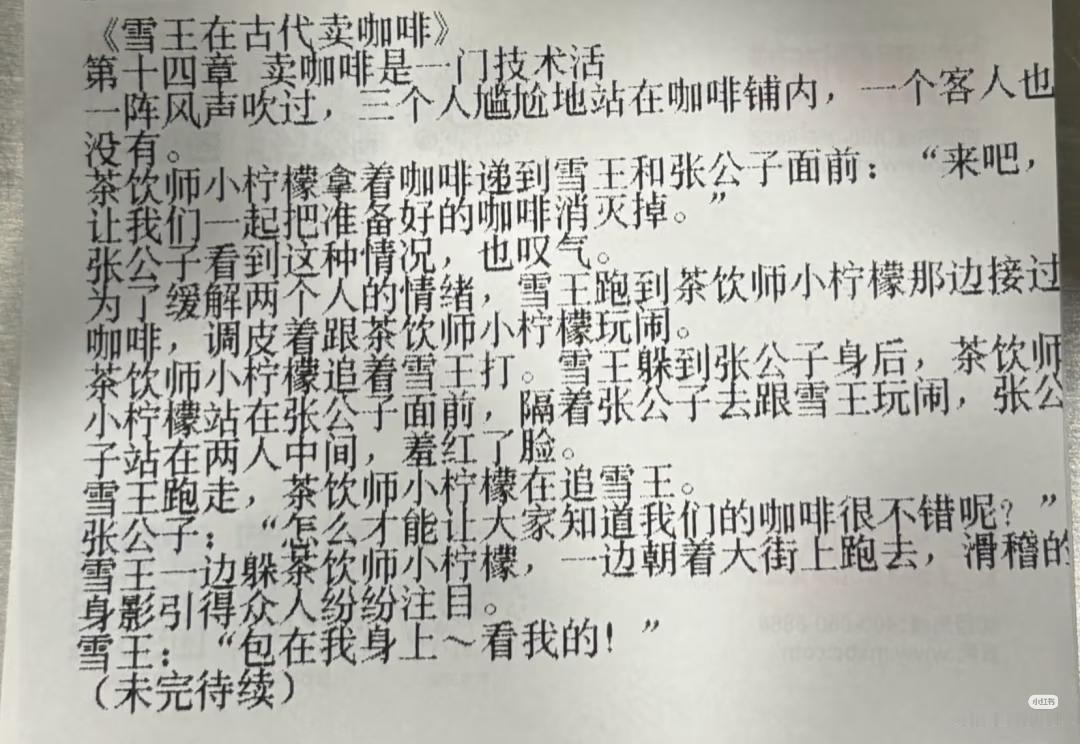 《雪王在古代卖咖啡》
第十四章 卖咖啡是一门技术活
一阵风声吹过，三个人尴尬地站在咖啡铺内，一个客人也
没有。
茶饮师小柠檬拿着咖啡递到雪王和张公子面前：“来吧，
让我们一起把准备好的咖啡消灭掉。”
张公子看到这种情况，也叹气。
为了缓解两个人的情绪，雪王跑到茶饮师小柠檬那边接过
咖啡，调皮着跟茶饮师小柠檬玩闹。
茶饮师小柠檬追着雪王打。雪王躲到张公子身后，茶饮师
小柠檬站在张公子面前，隔着张公子去跟雪王玩闹，张公
子站在两人中间，羞红了脸。
雪王跑走，茶饮师小柠檬在追雪王。
张公子：“怎么才能让大家知道我们的咖啡很不错呢？”
雪王一边躲茶饮师小柠檬，一边朝着大街上跑去，滑稽的
身影引得众人纷纷注目。
雪王：“包在我身上～看我的！”
（未完待续）
小红书